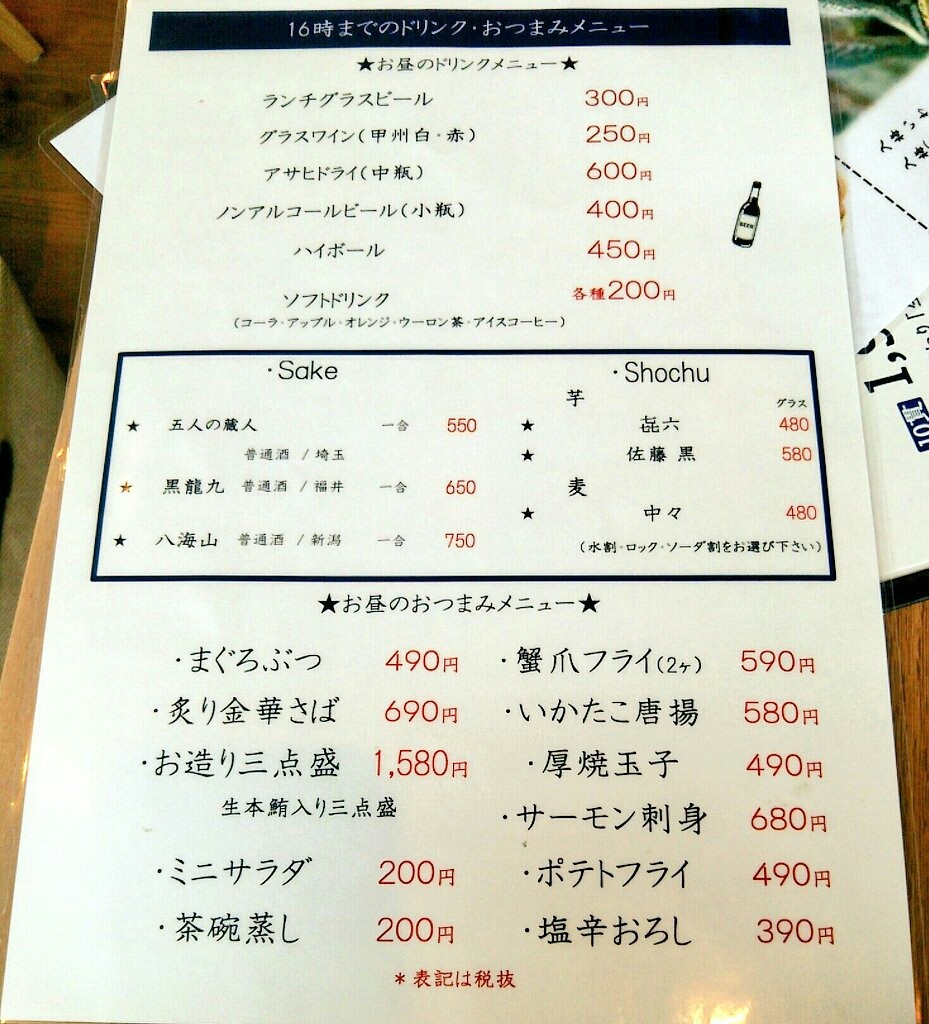 16時までのドリンク・おつまみメニュー
★お昼のドリンクメニュー★
ランチグラスビール 300円
グラスワイン(甲州白・赤) 250円
アサヒドライ(中瓶) 600円
ノンアルコールビール(小瓶) 400円
ハイボール 450円
ソフトドリンク 各種200円
(コーラ・アップル・オレンジ・ウーロン茶・アイスコーヒー)
BEER
・Sake
★ 五人の蔵人 一合 550
普通酒 / 埼玉
★ 黒龍九 普通酒 / 福井 一合 650
★ 八海山 普通酒 / 新潟 一合 750
・Shochu
芋 グラス
★ 㐂六 480
★ 佐藤 黒 580
麦
★ 中々 480
(水割・ロック・ソーダ割をお選び下さい)
★お昼のおつまみメニュー★
・まぐろぶつ 490円
・炙り金華さば 690円
・お造り三点盛 1,580円
生本鮪入り三点盛
・ミニサラダ 200円
・茶碗蒸し 200円
・蟹爪フライ(2ヶ) 590円
・いかたこ唐揚 580円
・厚焼玉子 490円
・サーモン刺身 680円
・ポテトフライ 490円
・塩辛おろし 390円
*表記は税抜